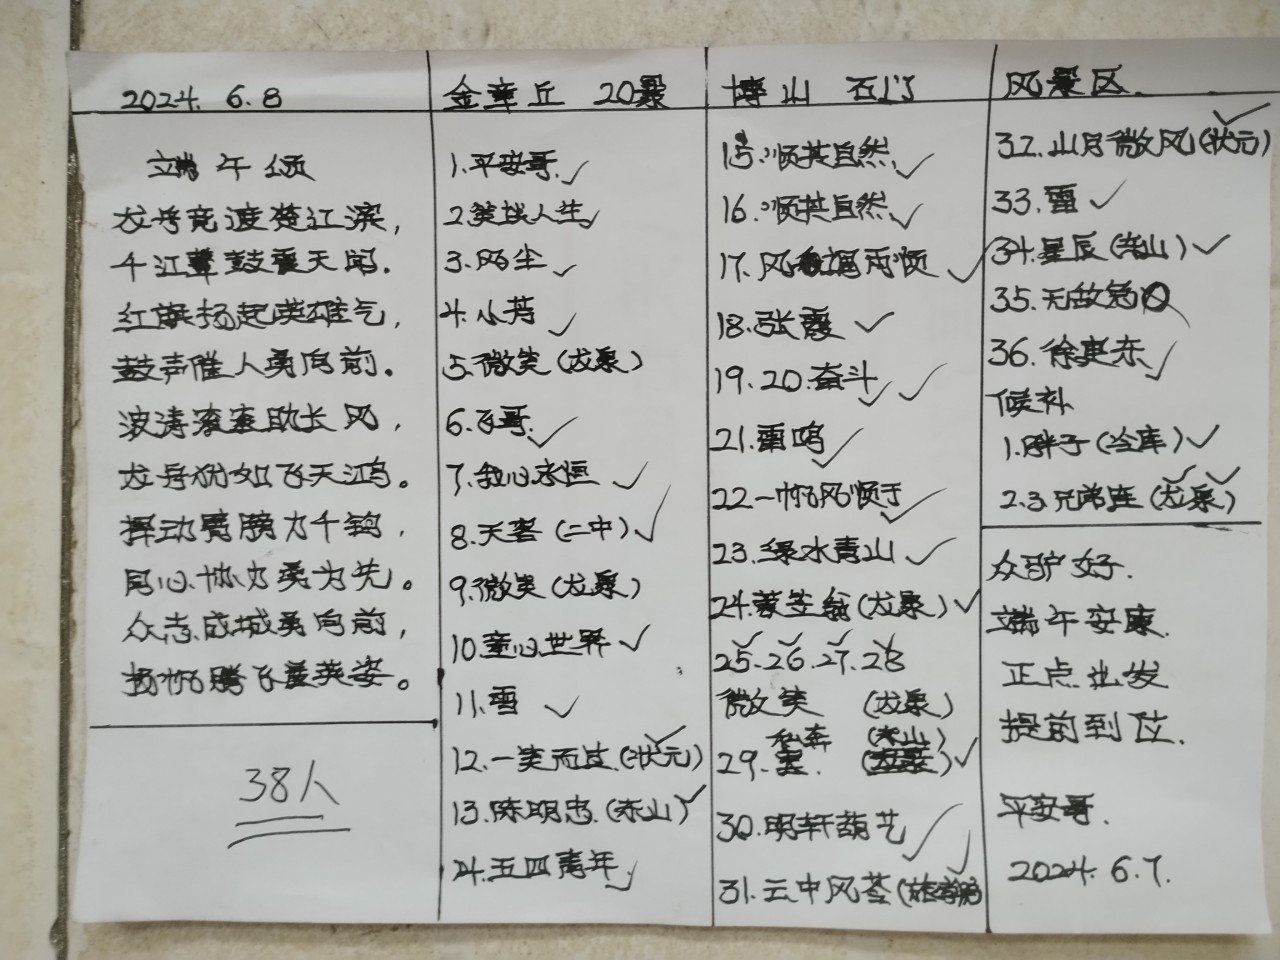 2024. 6.8
端午颂
龙舟竞渡楚江滨,
千江鼙鼓震天闻.
红旗扬起英雄气,
鼓声催人勇向前。
波涛滚滚助长风,
龙舟犹如飞天鸿。
挥动臂膀力千钧,
同心协力勇为先。
众志成城勇向前,
扬帆腾飞显英姿。
38人
金章丘 20景
1.平安哥.✓
2.笑找人生✓
3.风尘 ✓
4.小芳 ✓
5.微笑(龙泉)
6.飞哥.✓
7.我心永恒 ✓
8.天客(二中)✓
9.微笑(龙泉)
10.童心世界 ✓
11.雪 ✓
12.一笑而过.(状元)✓
13.陈明忠.(东山)✓
24.五四青年✓
博山 石门
15.顺其自然.✓
16.顺其自然.✓
17.风调雨顺 ✓
18.张霞 ✓
19.20.奋斗 ✓ ✓
21.雷鸣 ✓
22.一帆风顺于 ✓
23.绿水青山 ✓
24.蓑笠翁(龙泉)✓
25.26.27.28 ✓ ✓ ✓ ✓
微笑 (龙泉)
(东山)
29. ✓
30.明轩葫艺 ✓
31.云中风荟 ✓
风景区.
32.山月微风(状元)✓
33.雷 ✓
34.星辰(东山)✓
35.无敌兔
36.徐東东 ✓
候补
1.胖子(仓库)✓
2.3兄弟连(龙泉)✓ ✓
众驴好.
端午安康.
正点出发
提前到位.
平安哥.
2024. 6.7.